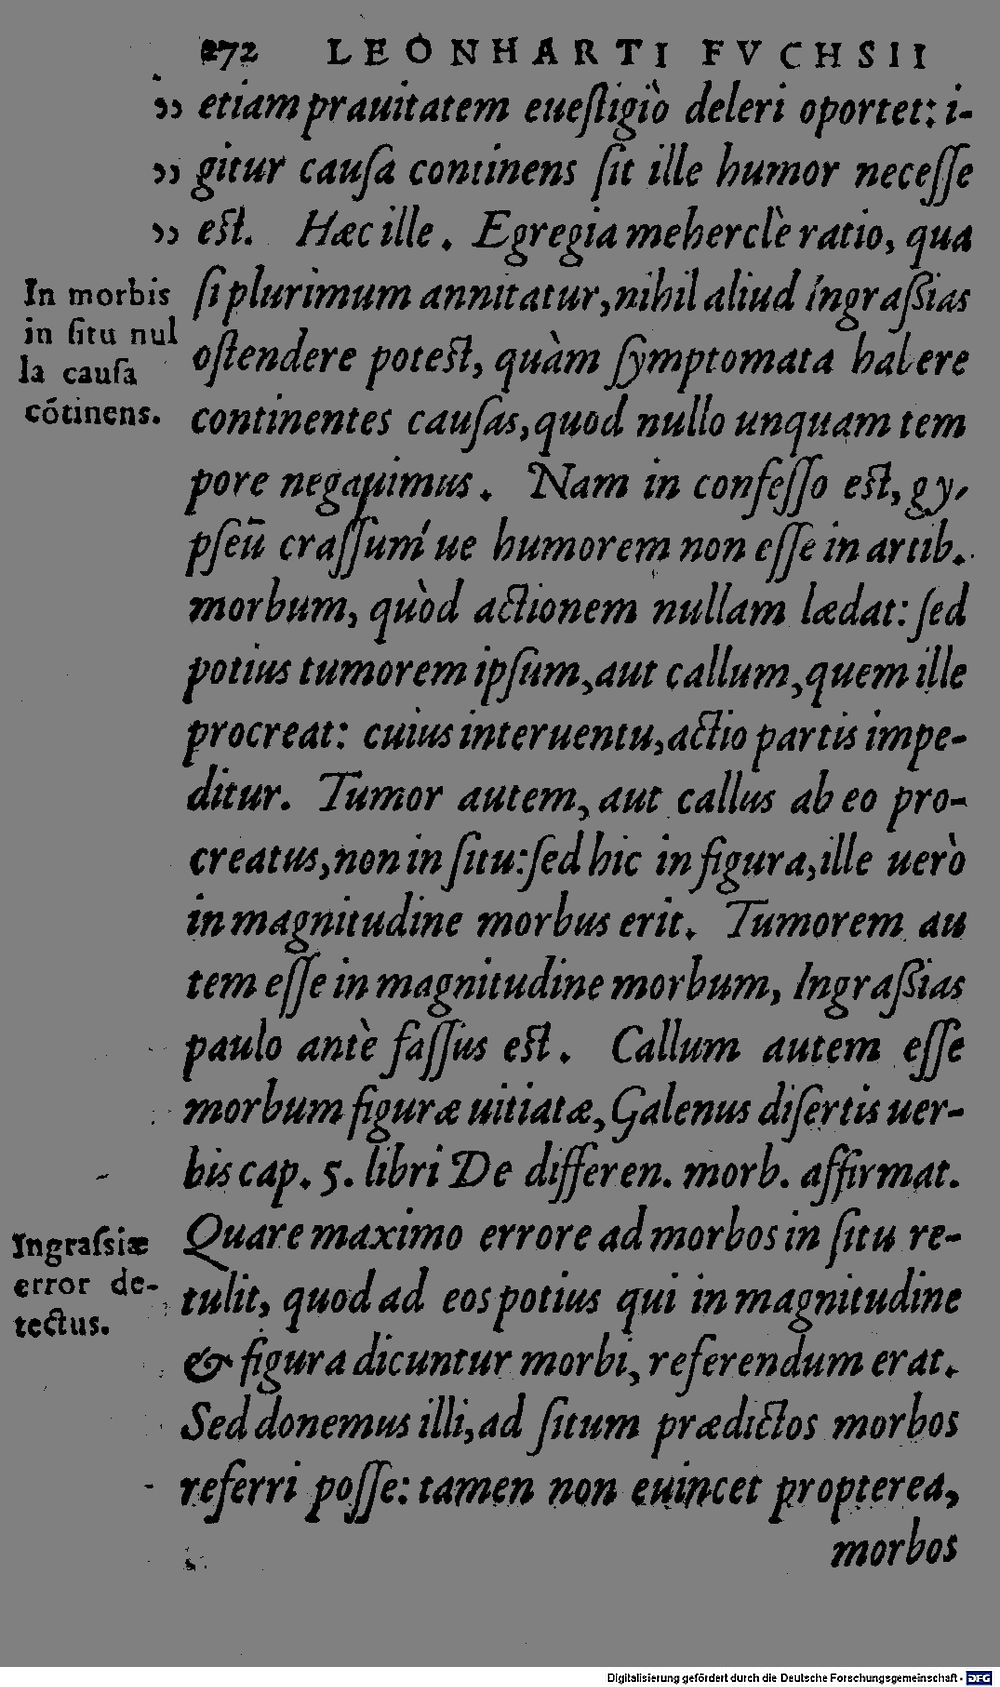 272 LEONHARTI FVCHSII
„ etiam prauitatem eueſtigiò deleri oportet: i-
„ gitur cauſa continens ſit ille humor neceſſe
„ eſt. Hæc ille. Egregia meherclè ratio, qua
ſi plurimum annitatur, nihil aliud Ingraßias
oſtendere poteſt, quàm ſymptomata habere
continentes cauſas, quod nullo unquam tem
pore negauimus. Nam in confeſſo eſt, gy-
pſeũ craſſum'ue humorem non eſſe in artib.
morbum, quòd actionem nullam lædat: ſed
potius tumorem ipſum, aut callum, quem ille
procreat: cuius interuentu, actio partis impe-
ditur. Tumor autem, aut callus ab eo pro-
creatus, non in ſitu: ſed hic in figura, ille uerò
in magnitudine morbus erit. Tumorem au
tem eſſe in magnitudine morbum, Ingraßias
paulo antè faſſus eſt. Callum autem eſſe
morbum figuræ uitiatæ, Galenus diſertis uer-
bis cap. 5. libri De differen. morb. affirmat.
Quare maximo errore ad morbos in ſitu re-
tulit, quod ad eos potius qui in magnitudine
& figura dicuntur morbi, referendum erat.
Sed donemus illi, ad ſitum prædictos morbos
referri poſſe: tamen non euincet propterea,
morbos
In morbis
in ſitu nul
la cauſa
cōtinens.
Ingraſsiæ
error de-
tectus.
Digitalisierung gefördert durch die Deutsche Forschungsgemeinschaft - DFG